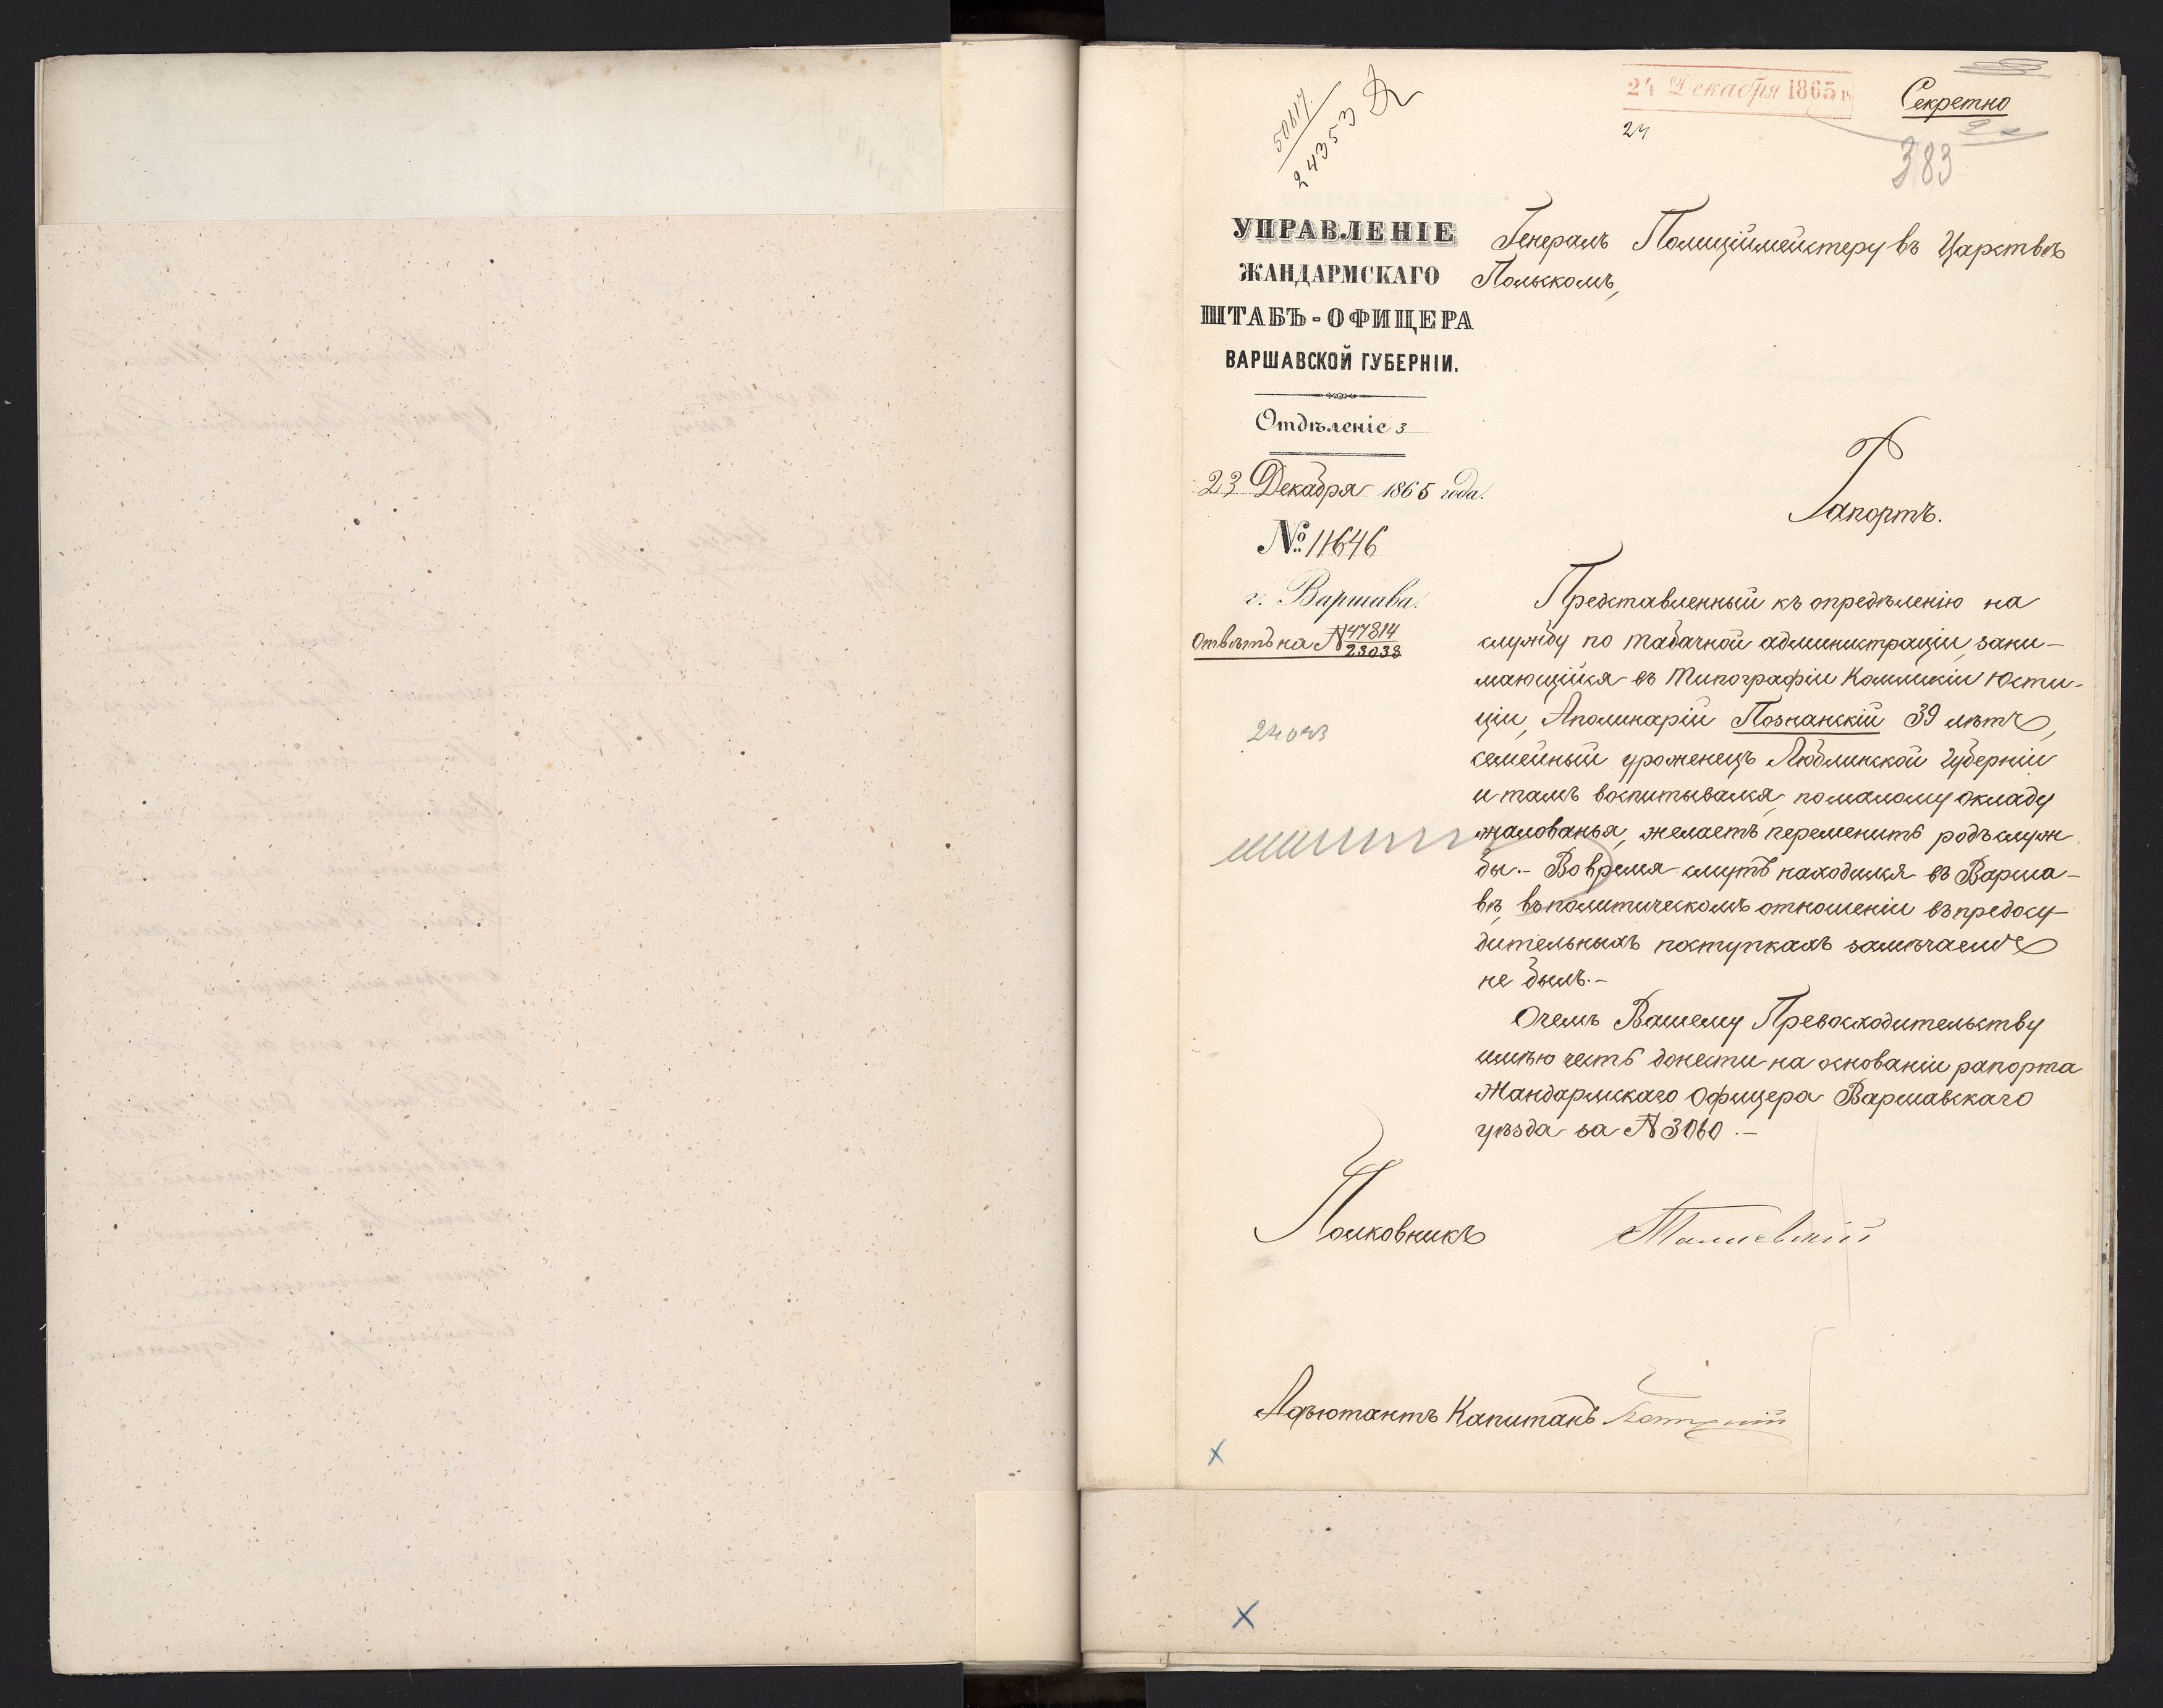 24 Декабря 1865 г.
Секретно
24
383
50617
24353
УПРАВЛЕНІЕ
ЖАНДАРМСКАГО
ШТАБЪ-ОФИЦЕРА
ВАРШАВСКОЙ ГУБЕРНІИ.
Отдѣленіе 3
23 Декабря 1865 года.
№ 11646
г. Варшава.
Отвѣтъ на № 47814
23033
Генералъ Полиціймейстеру въ Царствѣ
Польскомъ,
Рапортъ.
Представленный къ опредѣленію на
службу по табачной администраціи, зани-
мающійся въ Типографіи Коммисіи Юсти-
ціи, Аполинарій Познанскій 39 лѣтъ,
семейный уроженецъ Люблинской Губерніи
и тамъ воспитывался, по малому окладу
жалованья, желаетъ переменить родъ служ
бы.- Во время смутъ находился въ Варша-
вѣ, въ политическомъ отношеніи въ предосу-
дительныхъ поступкахъ замѣчаемъ
не былъ.-
О чемъ Вашему Превосходительству
имѣю честь донести на основаніи рапорта
Жандармскаго Офицера Варшавскаго
уѣзда за № 3060.-
Полковникъ
Адъютантъ Капитанъ